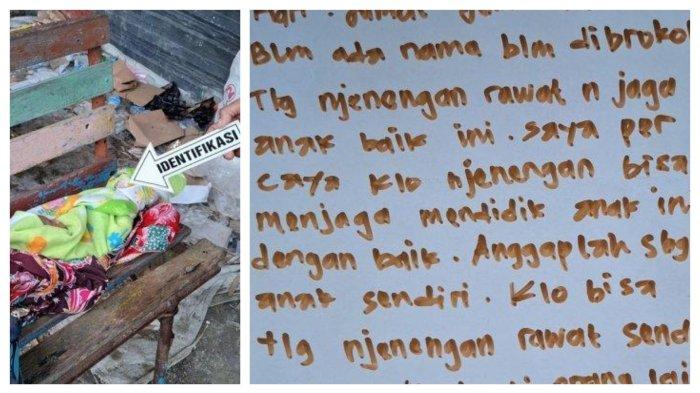 IDENTIFIKASI
Blm ada nama blm dibrokol
Tlg njenengan rawat n jaga
anak baik ini. saya per
caya klo njenengan bisa
menjaga mendidik anak in
dengan baik. Anggaplah sbg
anak sendiri. Klo bisa
tlg njenengan rawat send
orang lai